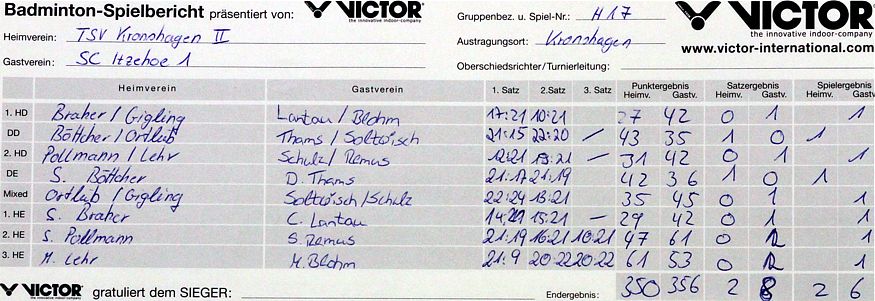 Badminton-Spielbericht präsentiert von: VICTOR the innovative indoor-company Gruppenbez. u. Spiel-Nr.: H17 VICTOR the innovative indoor-company
Heimverein: TSV Kronshagen II Austragungsort: Kronshagen www.victor-international.com
Gastverein: SC Itzehoe 1 Oberschiedsrichter/Turnierleitung:
Heimverein Gastverein 1. Satz 2. Satz 3. Satz Punktergebnis Heimv. Gastv. Satzergebnis Heimv. Gastv. Spielergebnis Heimv. Gastv.
1. HD Braher / Gigling Lantau / Blohm 17:21 10:21 27 42 0 1 1
DD Böttcher / Ortlub Thams / Soltwisch 21:15 22:20 — 43 35 1 0 1
2. HD Pollmann / Lehr Schulz / Remus 12:21 19:21 — 31 42 0 1 1
DE S. Böttcher D. Thams 21:17 21:19 42 36 1 0 1
Mixed Ortlub / Gigling Soltwisch / Schulz 22:24 13:21 35 45 0 1 1
1. HE S. Braher C. Lantau 14:21 15:21 — 29 42 0 1 1
2. HE S. Pollmann S. Remus 21:19 16:21 10:21 47 61 0 1
3. HE M. Lehr M. Blohm 21:9 20:22 20:22 61 53 0 1
VICTOR gratuliert dem SIEGER: Endergebnis: 350 356 2 8 2 6